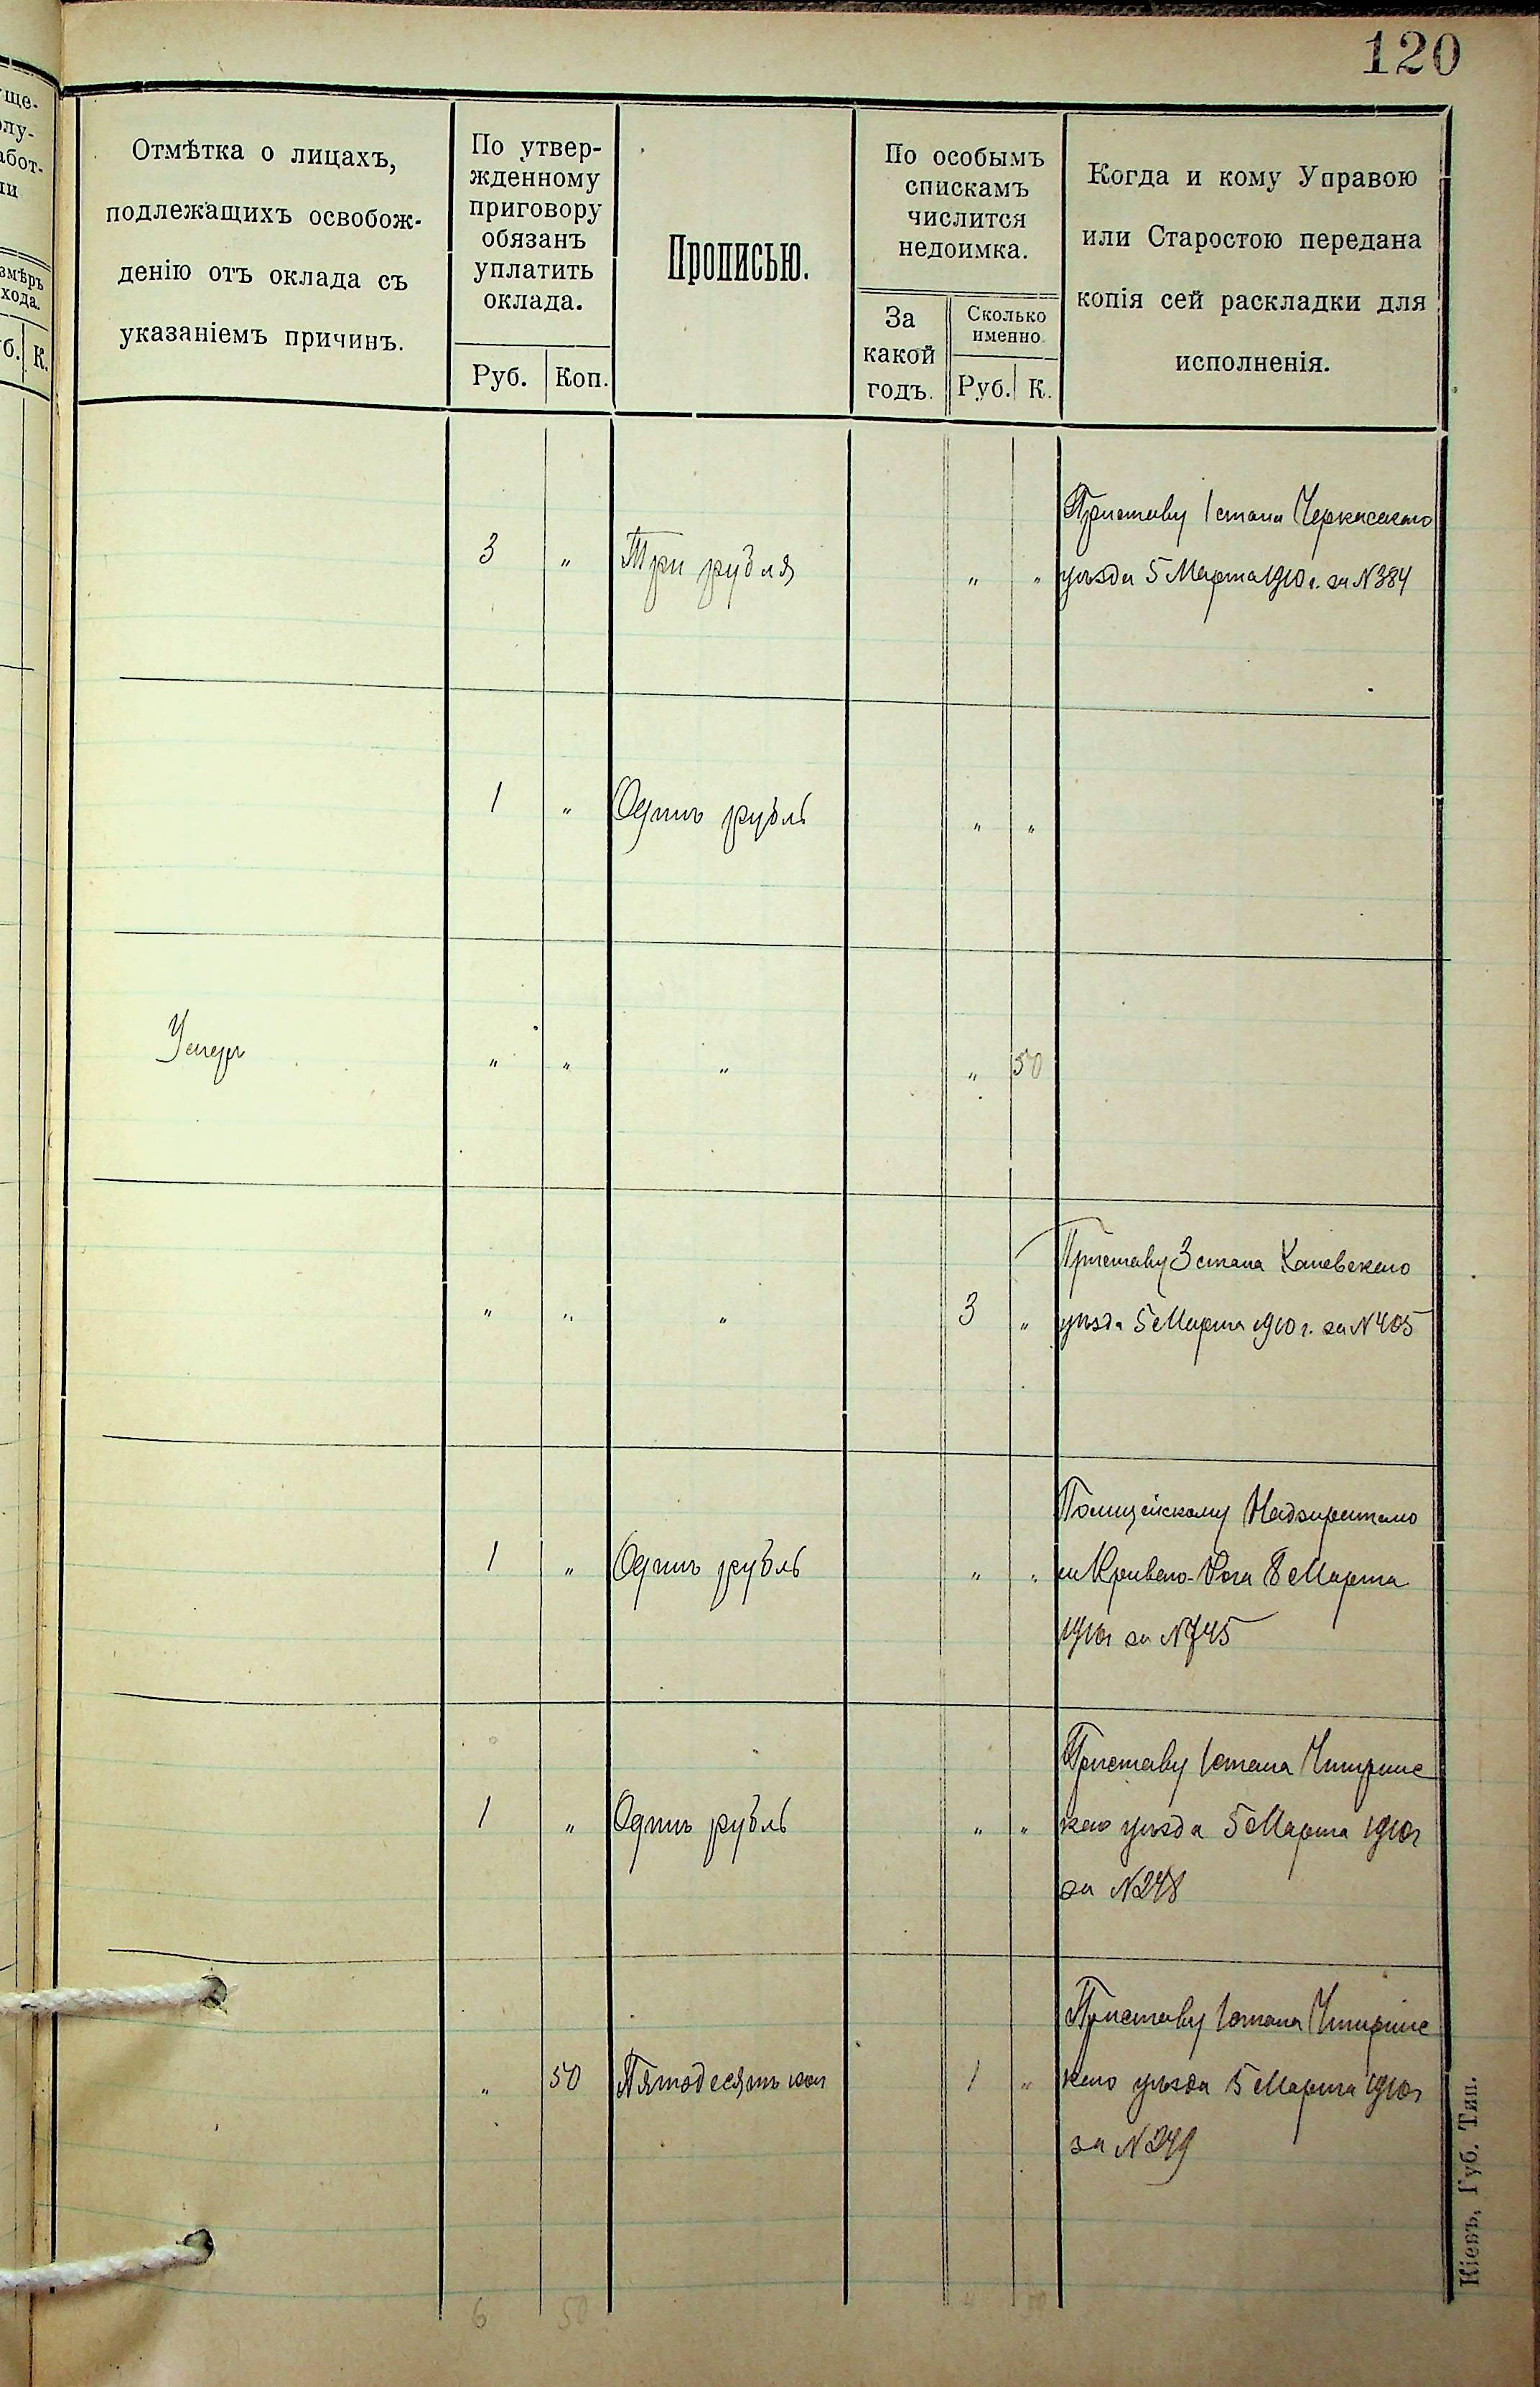 120
ще-
лу-
абот-
ли
змѣръ
хода.
б. К.
Отмѣтка о лицахъ,
подлежащихъ освобож-
денію отъ оклада съ
указаніемъ причинъ.
По утвер-
жденному
приговору
обязанъ
уплатить
оклада.
Руб. Коп.
Прописью.
По особымъ
спискамъ
числится
недоимка.
За
какой
годъ.
Сколько
именно
Руб. К.
Когда и кому Управою
или Старостою передана
копія сей раскладки для
исполненія.
3 " Три рубля " "
Приставу 1 стана Черкасскаго
уѣзда 5 Марта 1910 г. за N 384
1 " Одинъ рубль " "
Умеръ " " " " 50
" " " 3 "
Приставу 3 стана Каневскаго
уѣзда 5 Марта 1910 г. за N 405
1 " Одинъ рубль " "
Полицейскому Надзирателю
м Кривого-Рога 8 Марта
1910г за N 745
1 " Одинъ рубль " "
Приставу 1 стана Чигринс
каго уѣзда 5 Марта 1910г
за N 248
" 50 Пятьдесятъ коп 1 "
Приставу 1 стана Чигринс
каго уѣзда 5 Марта 1910г
за N 249
6 50 4 50
Кіевъ, Губ. Тип.